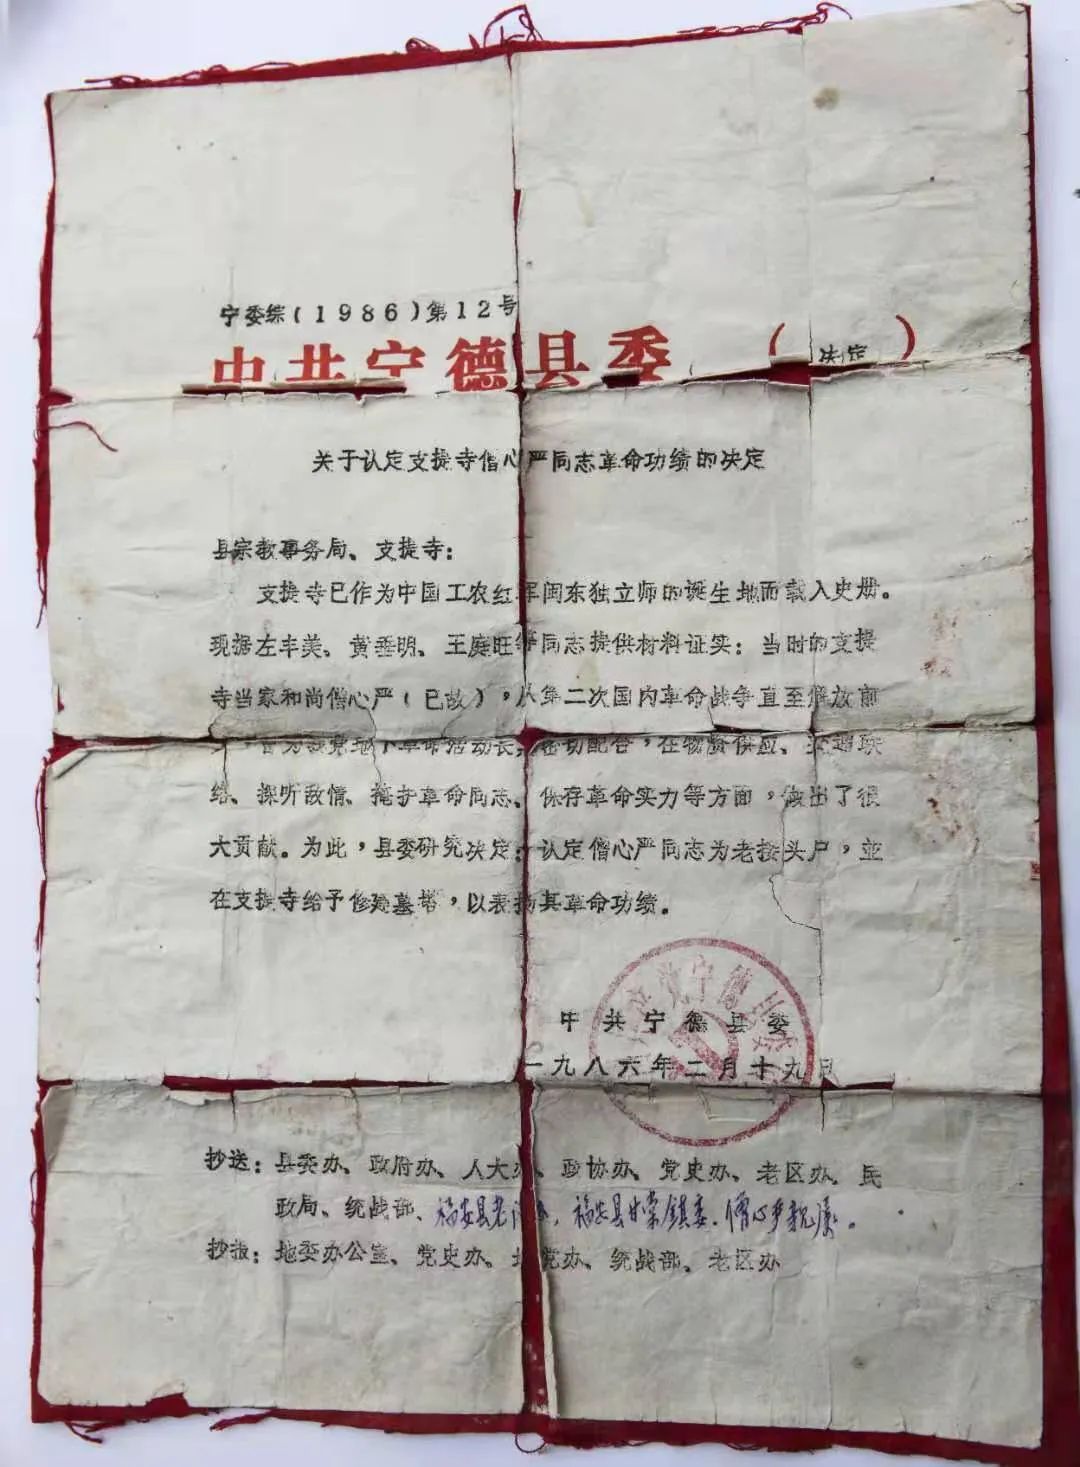 宁委综(1986)第12号
中共宁德县委(决定)
关于认定支提寺僧心严同志革命功绩的决定
县宗教事务局、支提寺:
支提寺已作为中国工农红军闽东独立师的诞生地而载入史册。
现据左丰美、黄垂明、王庭旺等同志提供材料证实:当时的支提
寺当家和尚僧心严(已故),从第二次国内革命战争直至解放前
为我党地下革命活动长密切配合,在物质供应、交通联
络、探听敌情、掩护革命同志、保存革命实力等方面,做出了很
大贡献。为此,县委研究决定:认定僧心严同志为老接头户,並
在支提寺给予修建墓塔,以表扬其革命功绩。
中共宁德县委
一九八六年二月十九日
抄送:县委办、政府办、人大办、政协办、党史办、老区办、民
政局、统战部、福安县老办,福安县甘棠鎮委.僧心严亲属。
抄报:地委办公室、党史办、党办、统战部、老区办